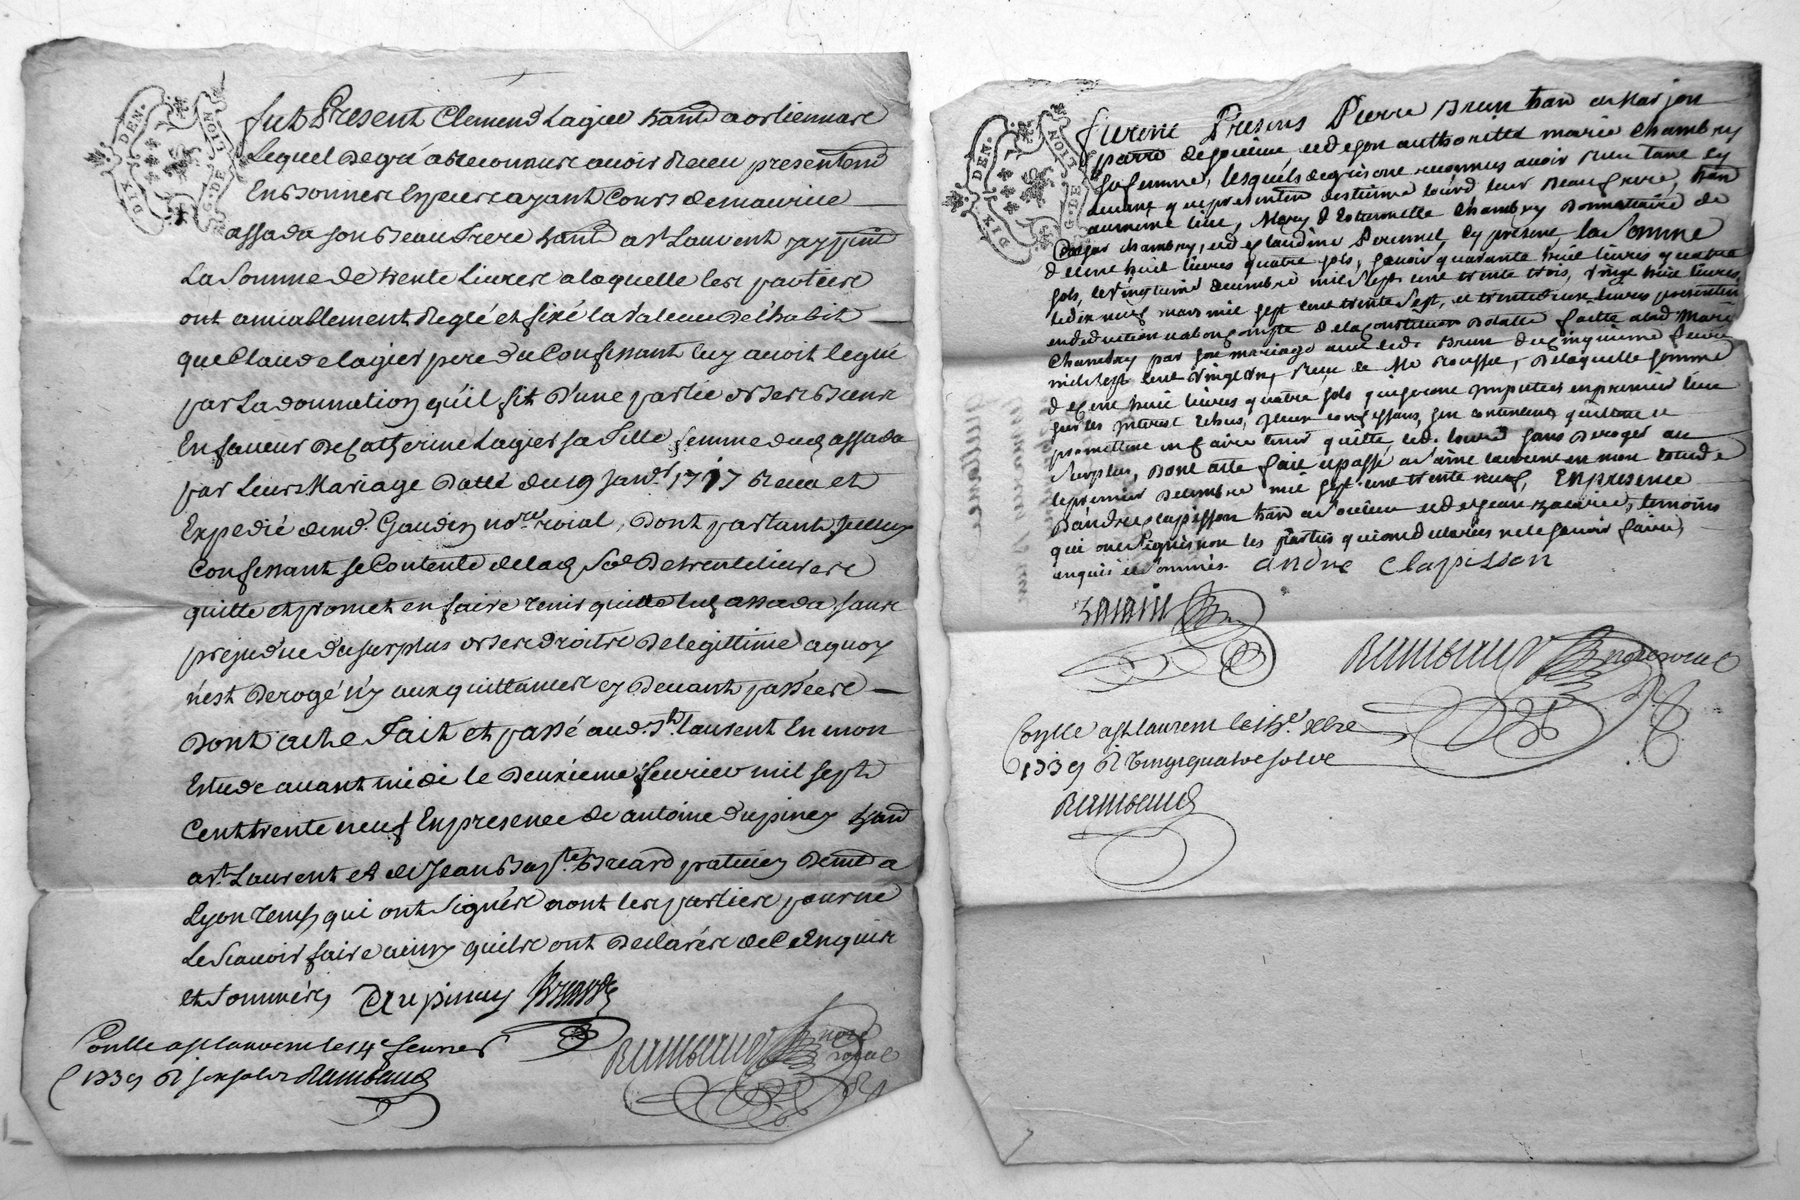 DIX DEN.
G. DE LION
fut Present Clemend Lagier hant a orliennare
Lequel de gré a reconnu avoir Receu presentem
En bonnere Espeere ayant Cours de maurice
assada son Beau frere hant a St Laurent icy present
La Somme de trente Livrere a laquelle lere partiere
ont amiablement Reglé et fixé la Valeur De L'habit
que Claude Lagier pere du Confessant luy avoit legué
par La donnation qu'il fit D'une partie de sere Biens
En faveur De Catherine Lagier sa fille femme dud assada
par Leur Mariage Datté du 19 Janv.r 1717 Receu et
Expedié de md Gaudin no.re roial, Dont partant
Confessant se Contente de lad So.e De trente livrere
quitte et promet en faire tenir quitte led assada sanre
prejudice du surplus de sere droitre De legittime a quoy
n'est Derogé n'y aux quittancere cy Devant passéere
Dont acte Fait et passé aud. St. laurent En mon
Estude avant midi le Deuxieme fevrier mil sept
Cent trente neuf En presence de antoine dupinay hant
a St. Laurent et de Jean Bap.te Briard praticien Dem.t a
Lyon temoins qui ont Signére non lere partiere pour ne
Le Scavoir faire ainsy qu'ilre ont Declarére de Ce Enquire
et Sommére Dupinay Briard
Conlle a St Laurent le 14e fevrier
1739 R six solz Rambaud
Rambaud no.re royal
DIX DEN.
G. DE LION
furent Presens Pierre Brun han de
de son autorité marie Chambry
sa femme, lesquels de gré ont reconnus avoir receu tant cy
devant que presentem leur Beaufrere, han
au meme lieu, Mary d'Estiennette Chambry Donnataire de
Chambry, et de Claudine cy present, la Somme
de Cent huit livres quatre sols, savoir quarante huit livres quatre
sols, le vingtieme decembre mil Sept cent trente trois, vingt huit livres,
le dix neuf mars mil sept cent trente Sept, et trente deux livres presentem
en deduction et a bon compte de la Constitution Dotalle faitte a lad Marie
Chambry par son mariage avec led. Brun du cinquieme fevrier
mil sept cent vingt un, receu de Me Rousset, De laquelle somme
de Cent huit livres quatre sols qui seront imputés en premier lieu
sur les interest Echus, Confessans, se contentent quittent et
promettent en faire tenir quitte led. sans Deroger au
Surplus, Dont acte fait et passé a Saint Laurent en mon Etude
le premier Decembre mil sept cent trente neuf, En presence
D'andre Clapisson han a et de Jean Zacarie, temoins
qui ont Signés non les parties qui ont declarées ne le sçavoir faire,
enquis et Sommés. andre Clapisson
Rambaud no.re royal
Conlle a St Laurent le 13e Xbre
1739 R vingt quatre solz
Rambaud